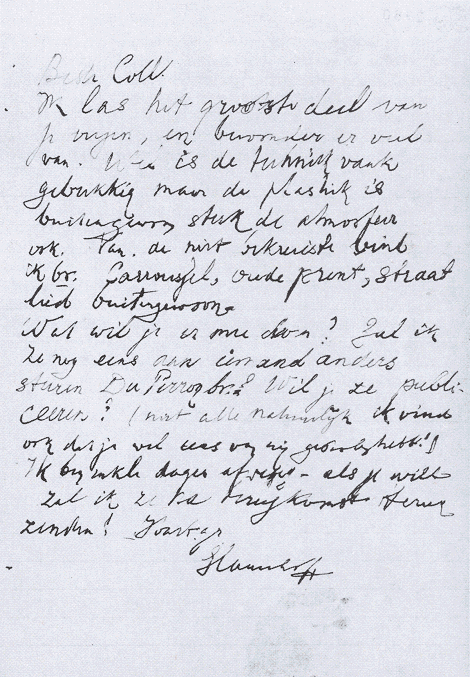 Beste Coll.
Ik las het grootste deel van
je verzen, en bewonder er veel
van. Wel is de techniek vaak
gebrekkig maar de plastiek is
buitengewoon sterk de atmosfeer
ook. Van de niet
ik bv. Carrousel, oude prent, straat
lied buitengewoon.
Wat wil je er mee doen? Zal ik
ze nog eens aan iemand anders
sturen Du Perron bv.? Wil je ze publi-
ceeren? (niet alle natuurlijk ik vind
ook dat je wel eens
Ik ben enkele dagen op reis - als je wilt
zal ik ze na terugkomst terug
zenden! Hartgr
Slauerhoff